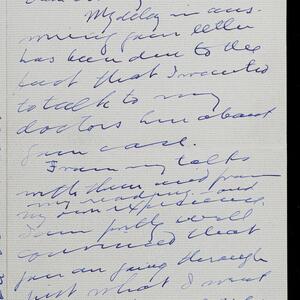 My delay in ans-
wering your letter
has been due to the
fact that I wanted
to talk to my
doctors here about
your case.
From my talks
with them and from
my reading - and
my own experience
I am pretty well
convinced that
you are going through
just what I went